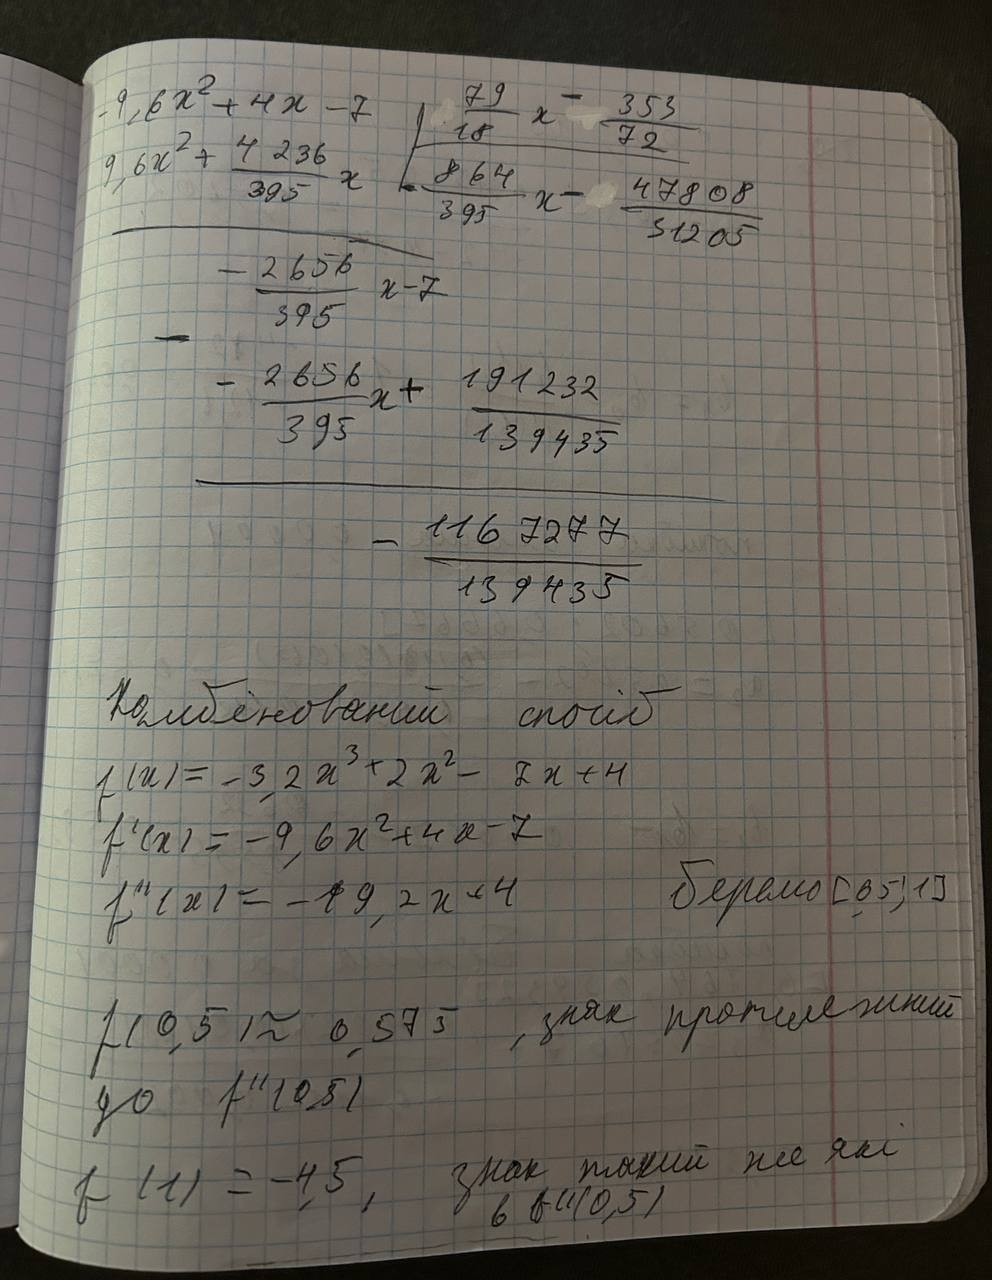 -9,6x² + 4x - 7 | 79/18 x - 353/72
9,6x² + 4236/395 x | 864/395 x - 47808/31205
- 2656/395 x - 7
-
- 2656/395 x + 191232/139435
- 1167277/139435
Комбінований спосіб
f(x) = -3,2x³ + 2x² - 7x + 4
f'(x) = -9,6x² + 4x - 7
f''(x) = -19,2x + 4 беремо [0,5; 1]
f(0,5) ≈ 0,575, знак протилежний
до f''(0,5)
f(1) = -4,5, знак такий же як і
в f''(0,5)